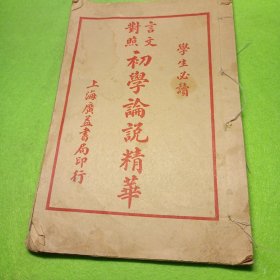 學生必讀
言文對照
初學論說精華
上海廣益書局印行